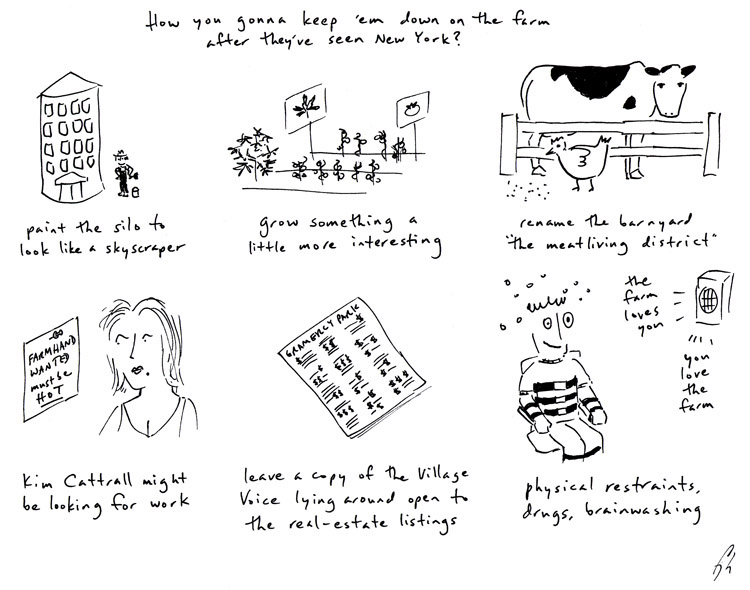 How you gonna keep 'em down on the farm
after they've seen New York?
paint the silo to
look like a skyscraper
grow something a
little more interesting
rename the barnyard
"the meatliving district"
FARMHAND
WANTED
must be
HOT
Kim Cattrall might
be looking for work
GRAMERCY PARK
leave a copy of the Village
Voice lying around open to
the real-estate listings
the
farm
loves
you
you
love
the
farm
physical restraints,
drugs, brainwashing